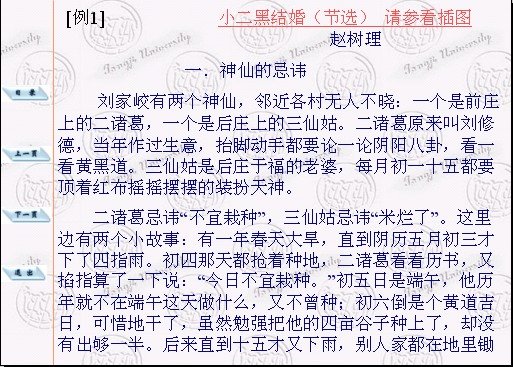 [例1] 小二黑结婚（节选） 请参看插图
赵树理
一．神仙的忌讳
刘家峧有两个神仙，邻近各村无人不晓：一个是前庄
上的二诸葛，一个是后庄上的三仙姑。二诸葛原来叫刘修
德，当年作过生意，抬脚动手都要论一论阴阳八卦，看一
看黄黑道。三仙姑是后庄于福的老婆，每月初一十五都要
顶着红布摇摇摆摆的装扮天神。
二诸葛忌讳“不宜栽种”，三仙姑忌讳“米烂了”。这里
边有两个小故事：有一年春天大旱，直到阴历五月初三才
下了四指雨。初四那天都抢着种地，二诸葛看看历书，又
掐指算了一下说：“今日不宜栽种。”初五日是端午，他历
年就不在端午这天做什么，又不曾种；初六倒是个黄道吉
日，可惜地干了，虽然勉强把他的四亩谷子种上了，却没
有出够一半。后来直到十五才又下雨，别人家都在地里锄
目 录
上一页
下一页
退 出